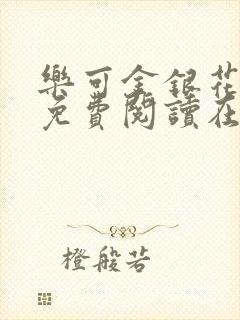 樂可金銀花
免費閱讀在
橙般若